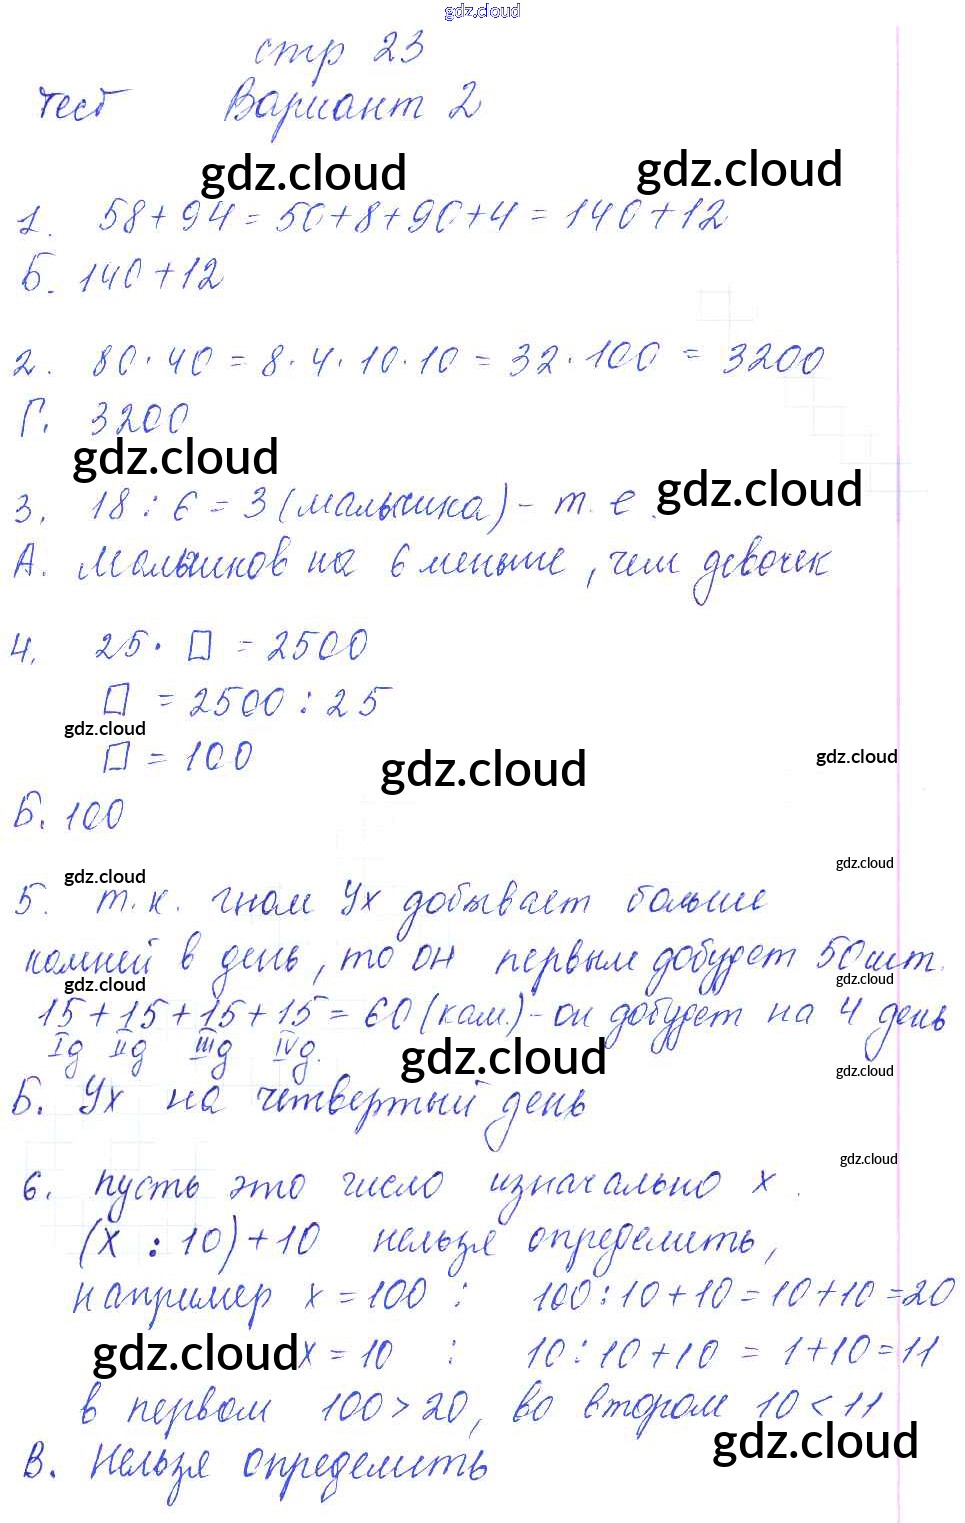 gdz.cloud
стр 23
тест Вариант 2
gdz.cloud gdz.cloud
1. 58+94=50+8+90+4=140+12
Б. 140+12
2. 80·40=8·4·10·10=32·100=3200
Г. 3200
gdz.cloud gdz.cloud
3. 18:6=3(малышка)-т.е.
А. Мальчиков на 6 меньше, чем девочек
4. 25·□=2500
□=2500:25
gdz.cloud
□=100
gdz.cloud gdz.cloud
Б. 100
gdz.cloud gdz.cloud
5. т.к. гном Ух добывает больше
камней в день, то он первым добудет 50шт.
gdz.cloud gdz.cloud
15+15+15+15=60(кам.)-он добудет на 4 день
Iд IIд IIIд IVд.
gdz.cloud gdz.cloud
Б. Ух на четвертый день
gdz.cloud
6. пусть это число изначально x.
(x:10)+10 нельзя определить,
например x=100: 100:10+10=10+10=20
gdz.cloud x=10: 10:10+10=1+10=11
в первом 100>20, во втором 10<11
gdz.cloud
В. Нельзя определить